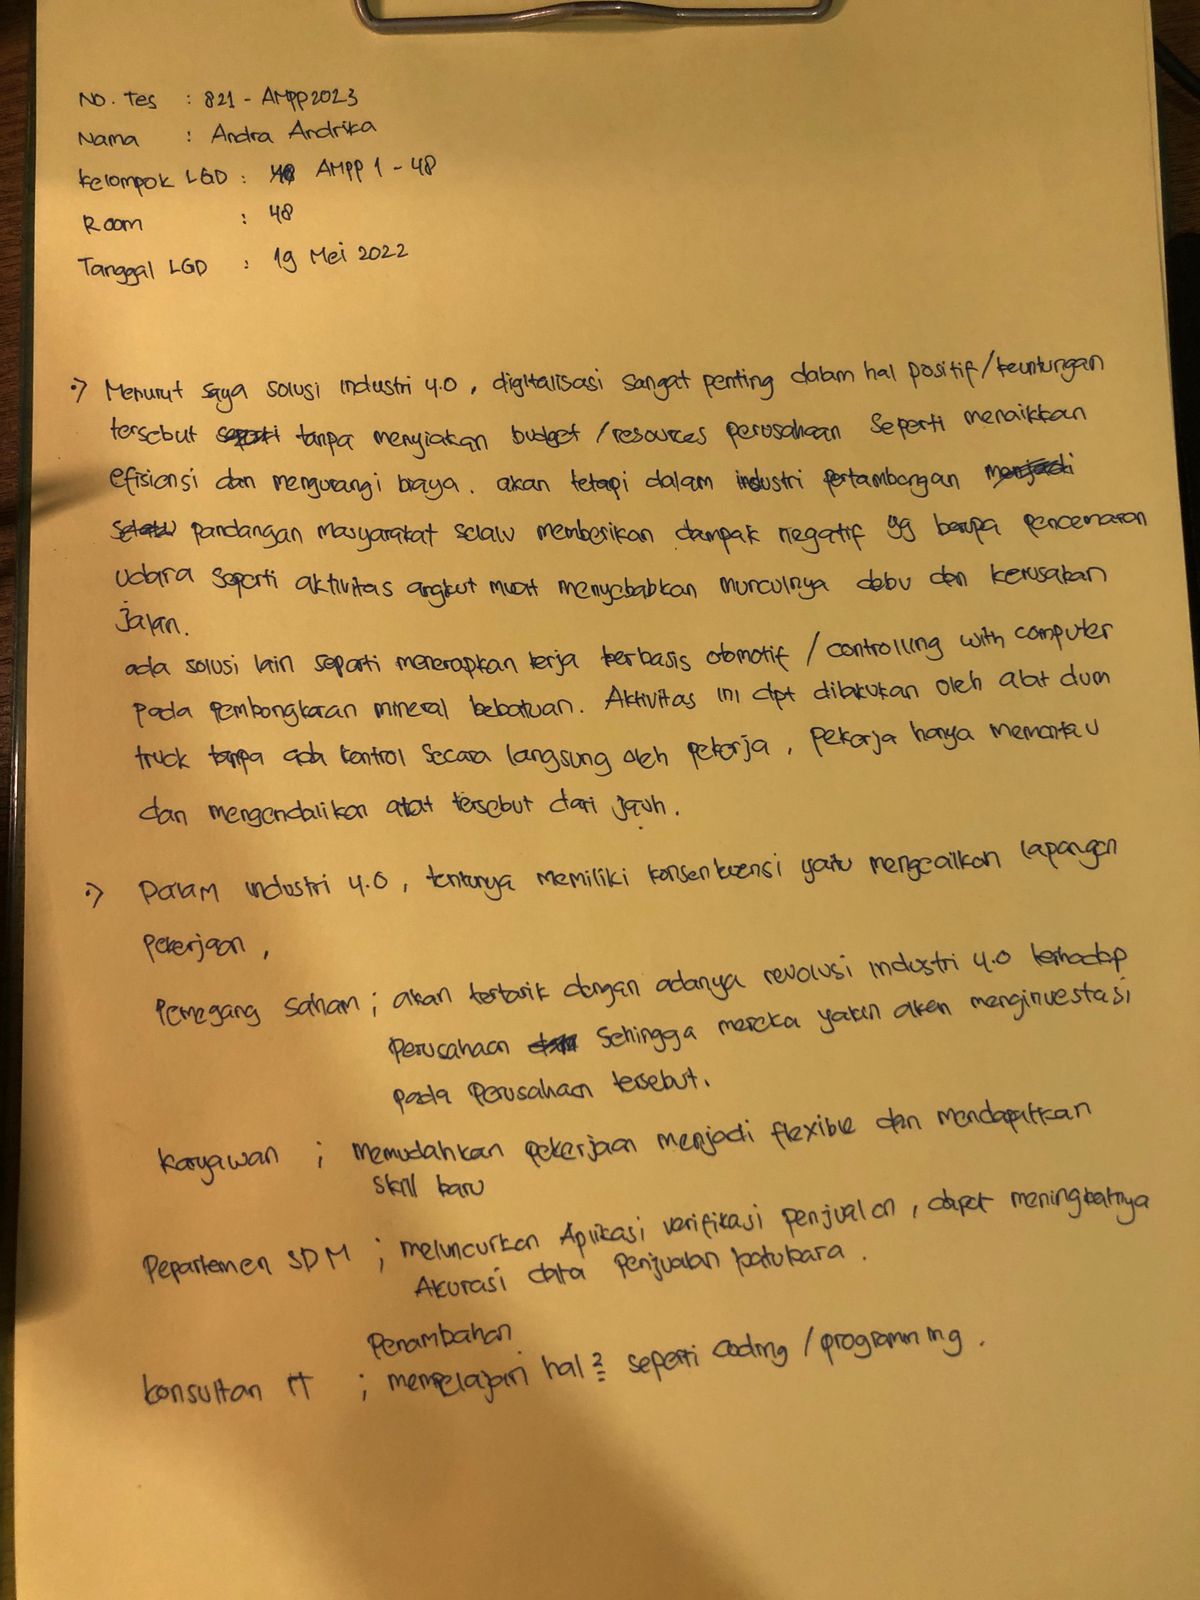 No. Tes : 821 - AMPP2023
Nama : Andra Andrika
Kelompok LGD : AMPP 1 - 48
Room : 48
Tanggal LGD : 19 Mei 2022
Menurut saya solusi industri 4.0, digitalisasi sangat penting dalam hal positif/keuntungan
tersebut tanpa menyiakan budget /resources perusahaan seperti menaikkan
efisiensi dan mengurangi biaya. akan tetapi dalam industri pertambangan
pandangan masyarakat selalu memberikan dampak negatif yg berupa pencemaran
udara seperti aktivitas angkut muat menyebabkan munculnya debu dan kerusakan
jalan.
ada solusi lain seperti menerapkan kerja berbasis otomotif / controlling with computer
pada pembongkaran mineral bebatuan. Aktivitas ini dpt dilakukan oleh alat dum
truck tanpa ada kontrol secara langsung oleh pekerja, pekerja hanya memantau
dan mengendalikan alat tersebut dari jauh.
Dalam industri 4.0, tentunya memiliki konsenkuensi yaitu mengecilkan lapangan
pekerjaan,
Pemegang saham ; akan tertarik dengan adanya revolusi industri 4.0 terhadap
perusahaan sehingga mereka yakin akan menginvestasi
pada perusahaan tersebut.
Karyawan ; memudahkan pekerjaan menjadi flexible dan mendapatkan
skill baru
Departemen SDM ; meluncurkan Aplikasi verifikasi penjualan, dapat meningkatnya
Akurasi data penjualan batubara.
Penambahan
Konsultan IT ; mempelajari hal2 seperti coding /programming.